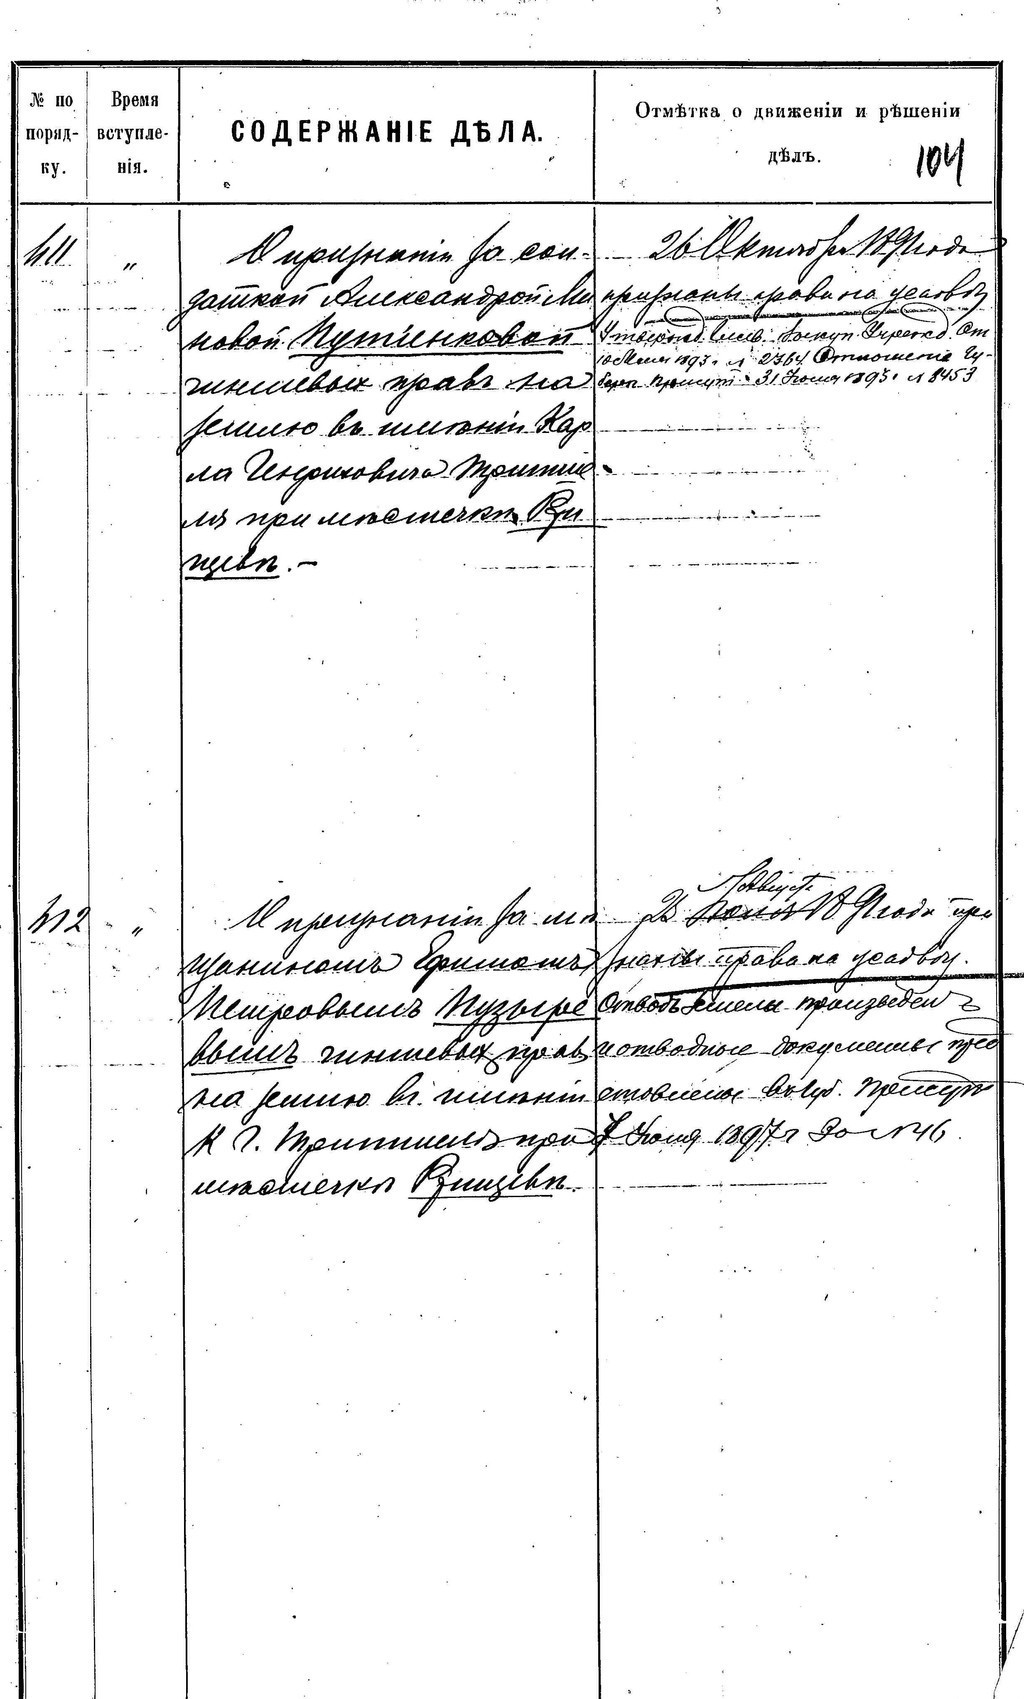 № по поряд- ку.
Время вступле- нія.
СОДЕРЖАНІЕ ДѢЛА.
Отмѣтка о движеніи и рѣшеніи дѣлъ.
104
411 "
О признаніи за сол-
даткой Александрой Ми
новой Путиенковой
чиншевых правъ на
землю въ имѣніи Кар
ла Генриховича Тритше
ля при мѣстечкѣ Рѣи
щевѣ.-
26 Октября 189 года
признаны права на усадьбу
10 Мая 1893 г. № 2364 Отношеніе Гу-
берн. Присут. 31 Іюля 1893 г. № 8453
412 "
О признаніи за мѣ
щаниномъ Ефимомъ
Петровымъ Пузыре
вымъ чиншевых правъ
на землю въ имѣніи
К Г. Тритшеля при
мѣстечкѣ Ржищевѣ.
Августа
26 189 года при
знаны права на усадьбу.
Отводъ земли произведен
и отводные документы пред
ставлены въ Губ. Присут
7 Іюня 1897 г за № 46.